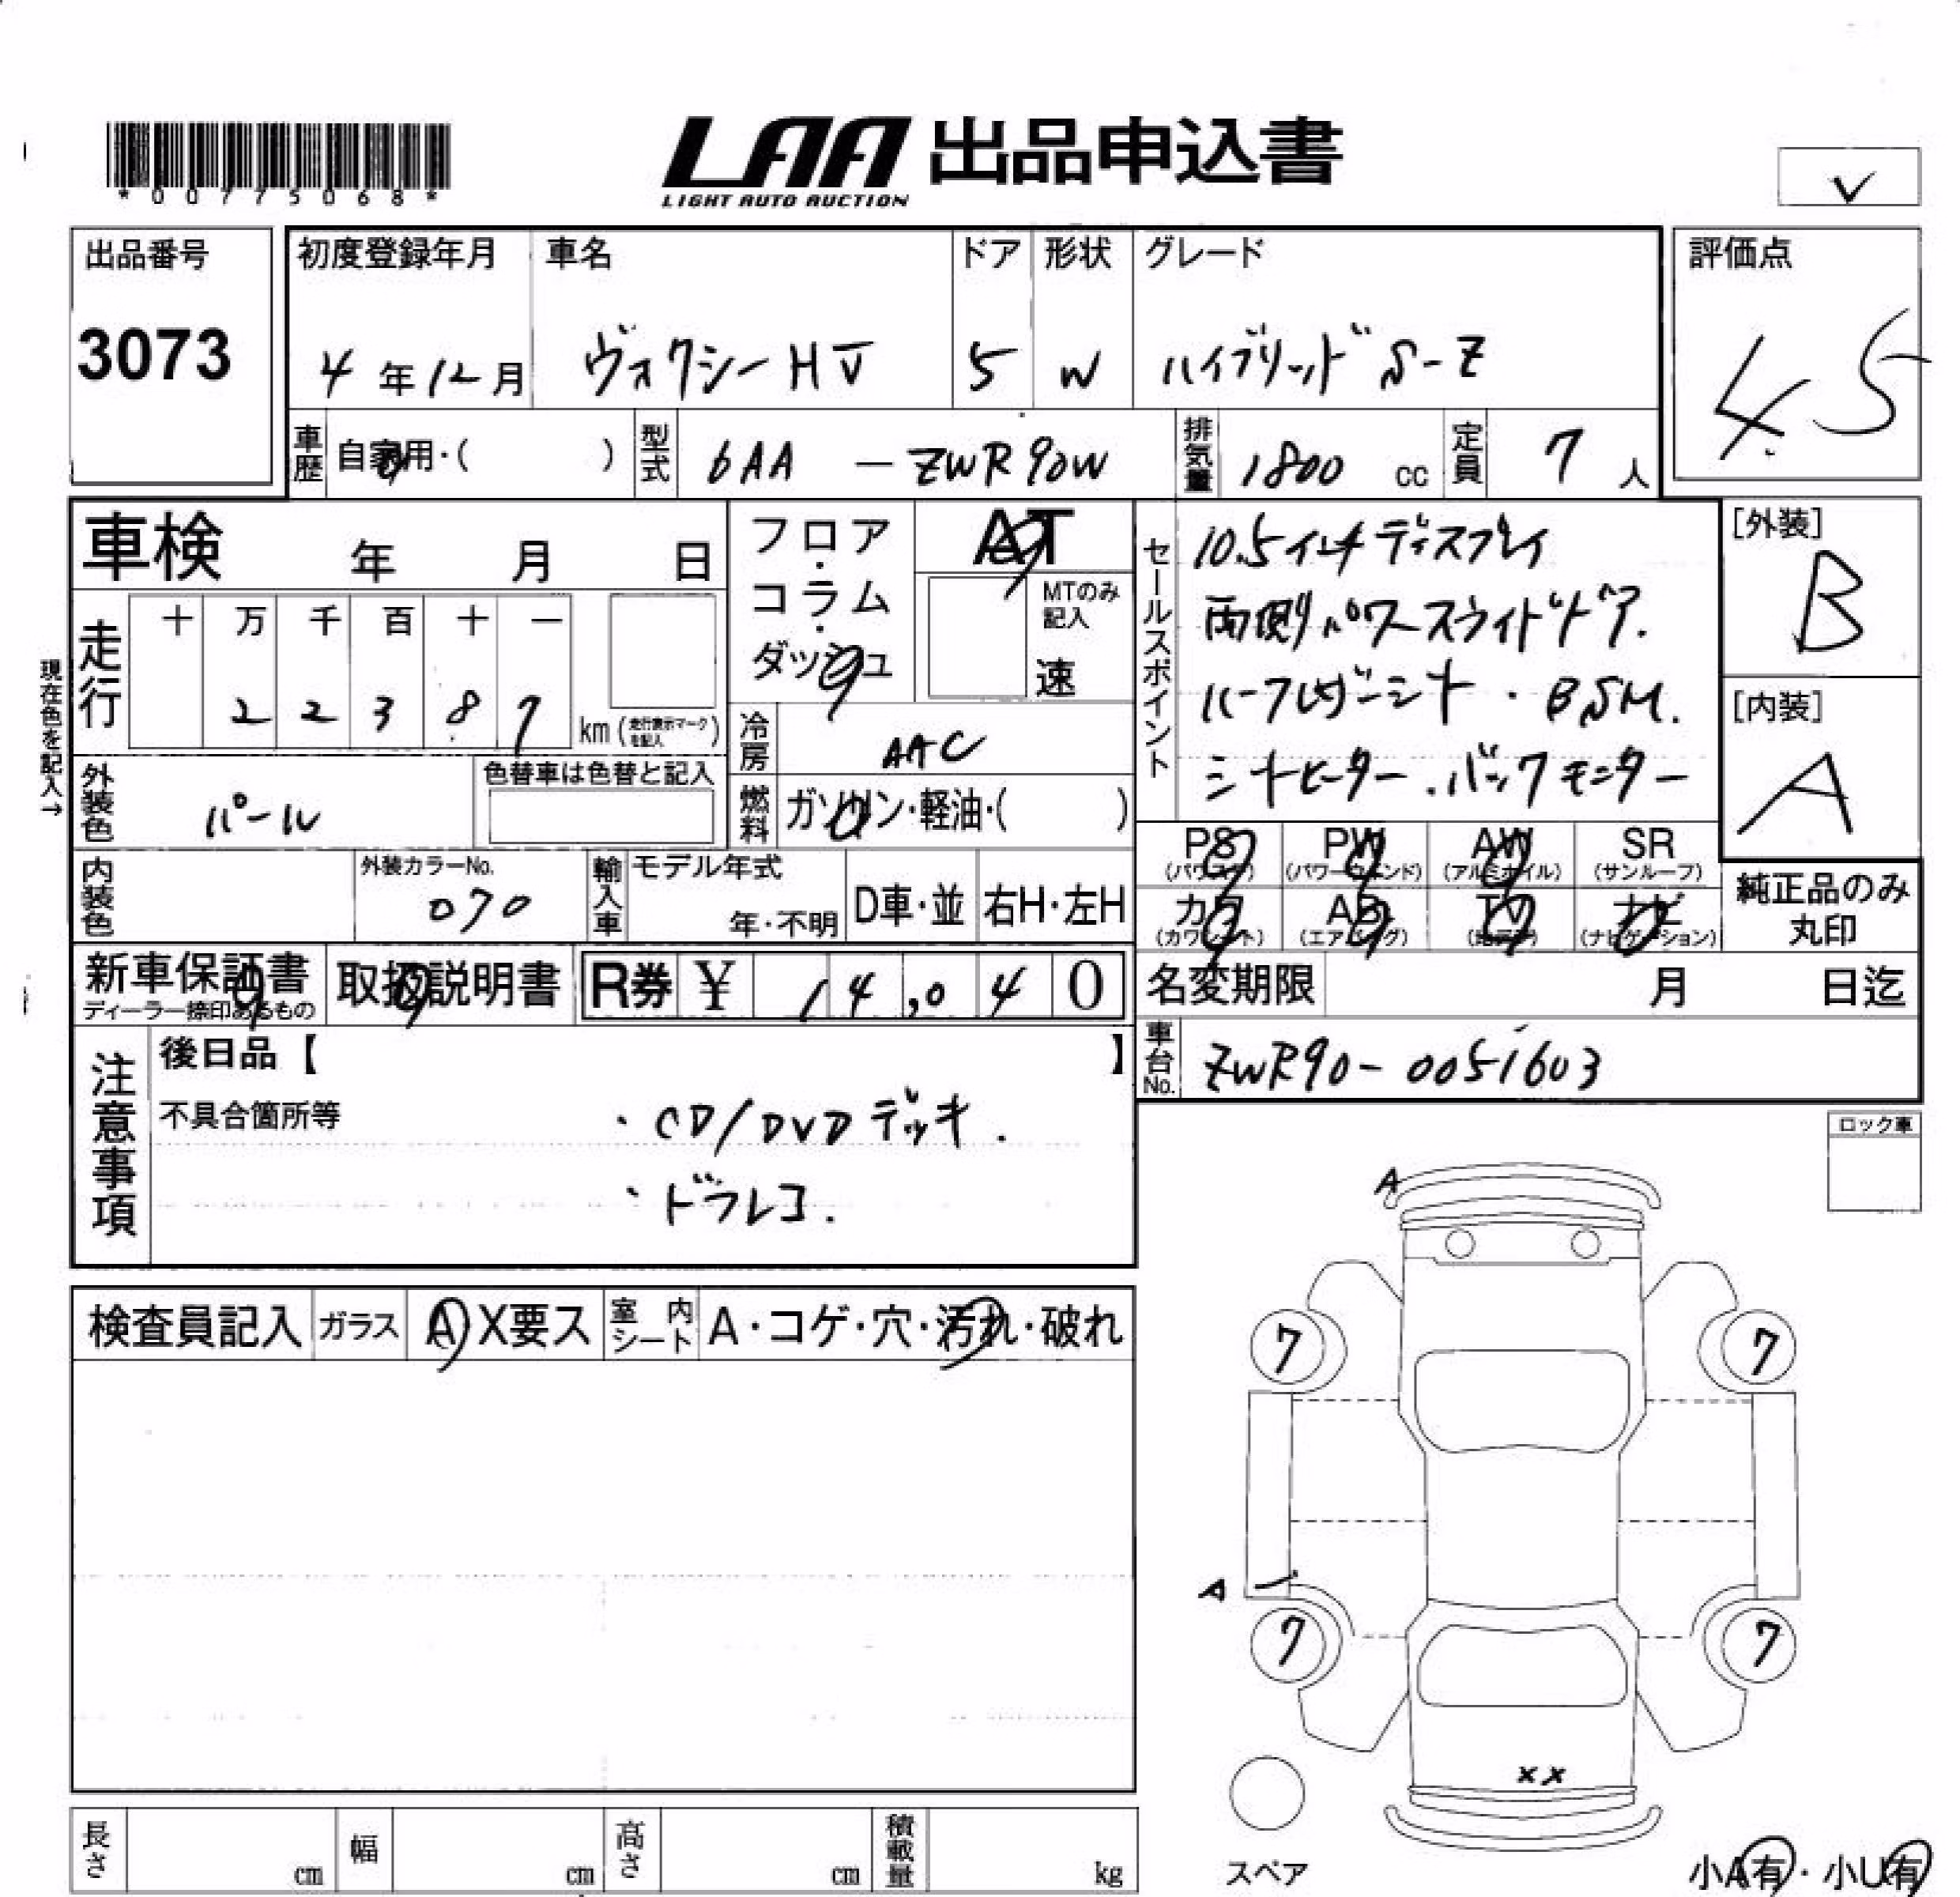 LAA 出品申込書
LIGHT AUTO AUCTION
*00775068*
✓
出品番号
3073
初度登録年月 車名 ドア 形状 グレード
4年12月 ヴォクシーHV 5 W ハイブリッド S-Z
評価点
4.5
車歴 自家用・( ) 型式 6AA — ZWR90W 排気量 1800 cc 定員 7 人
車検 年 月 日
フロア・コラム・ダッシュ
AT
MTのみ記入
速
セールスポイント
10.5インチディスプレイ
両側パワースライドドア.
ハーフレザーシート・BSM.
シートヒーター.バックモニター
[外装]
B
[内装]
A
現在色を記入→
走行 十 万 千 百 十 一
2 2 3 8 7 km (走行表示マークを記入)
冷房 AAC
外装色 パール 色替車は色替と記入
燃料 ガソリン・軽油・( )
PS (パワステ) PW (パワーウィンド) AW (アルミホイル) SR (サンルーフ)
カワ (カワシート) AB (エアバッグ) TV (地デジ) ナビ (ナビゲーション)
純正品のみ丸印
内装色 外装カラーNo. 070
輸入車 モデル年式 年・不明 D車・並 右H・左H
新車保証書 ディーラー捺印あるもの
取扱説明書
R券 ¥ 14,040
名変期限 月 日迄
車台No. ZWR90-0051603
注意事項
後日品【 】
不具合箇所等
・CD/DVDデッキ.
・ドラレコ.
ロック車
検査員記入 ガラス A X要ス 室内シート A・コゲ・穴・汚れ・破れ
A
7 7
A
7 7
××
スペア
小A有・小U有
長さ cm 幅 cm 高さ cm 積載量 kg